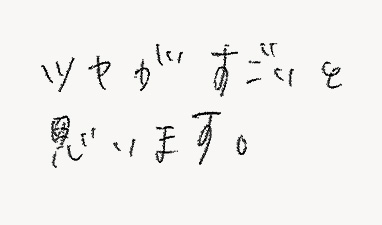 ツヤがすごいと
思います。